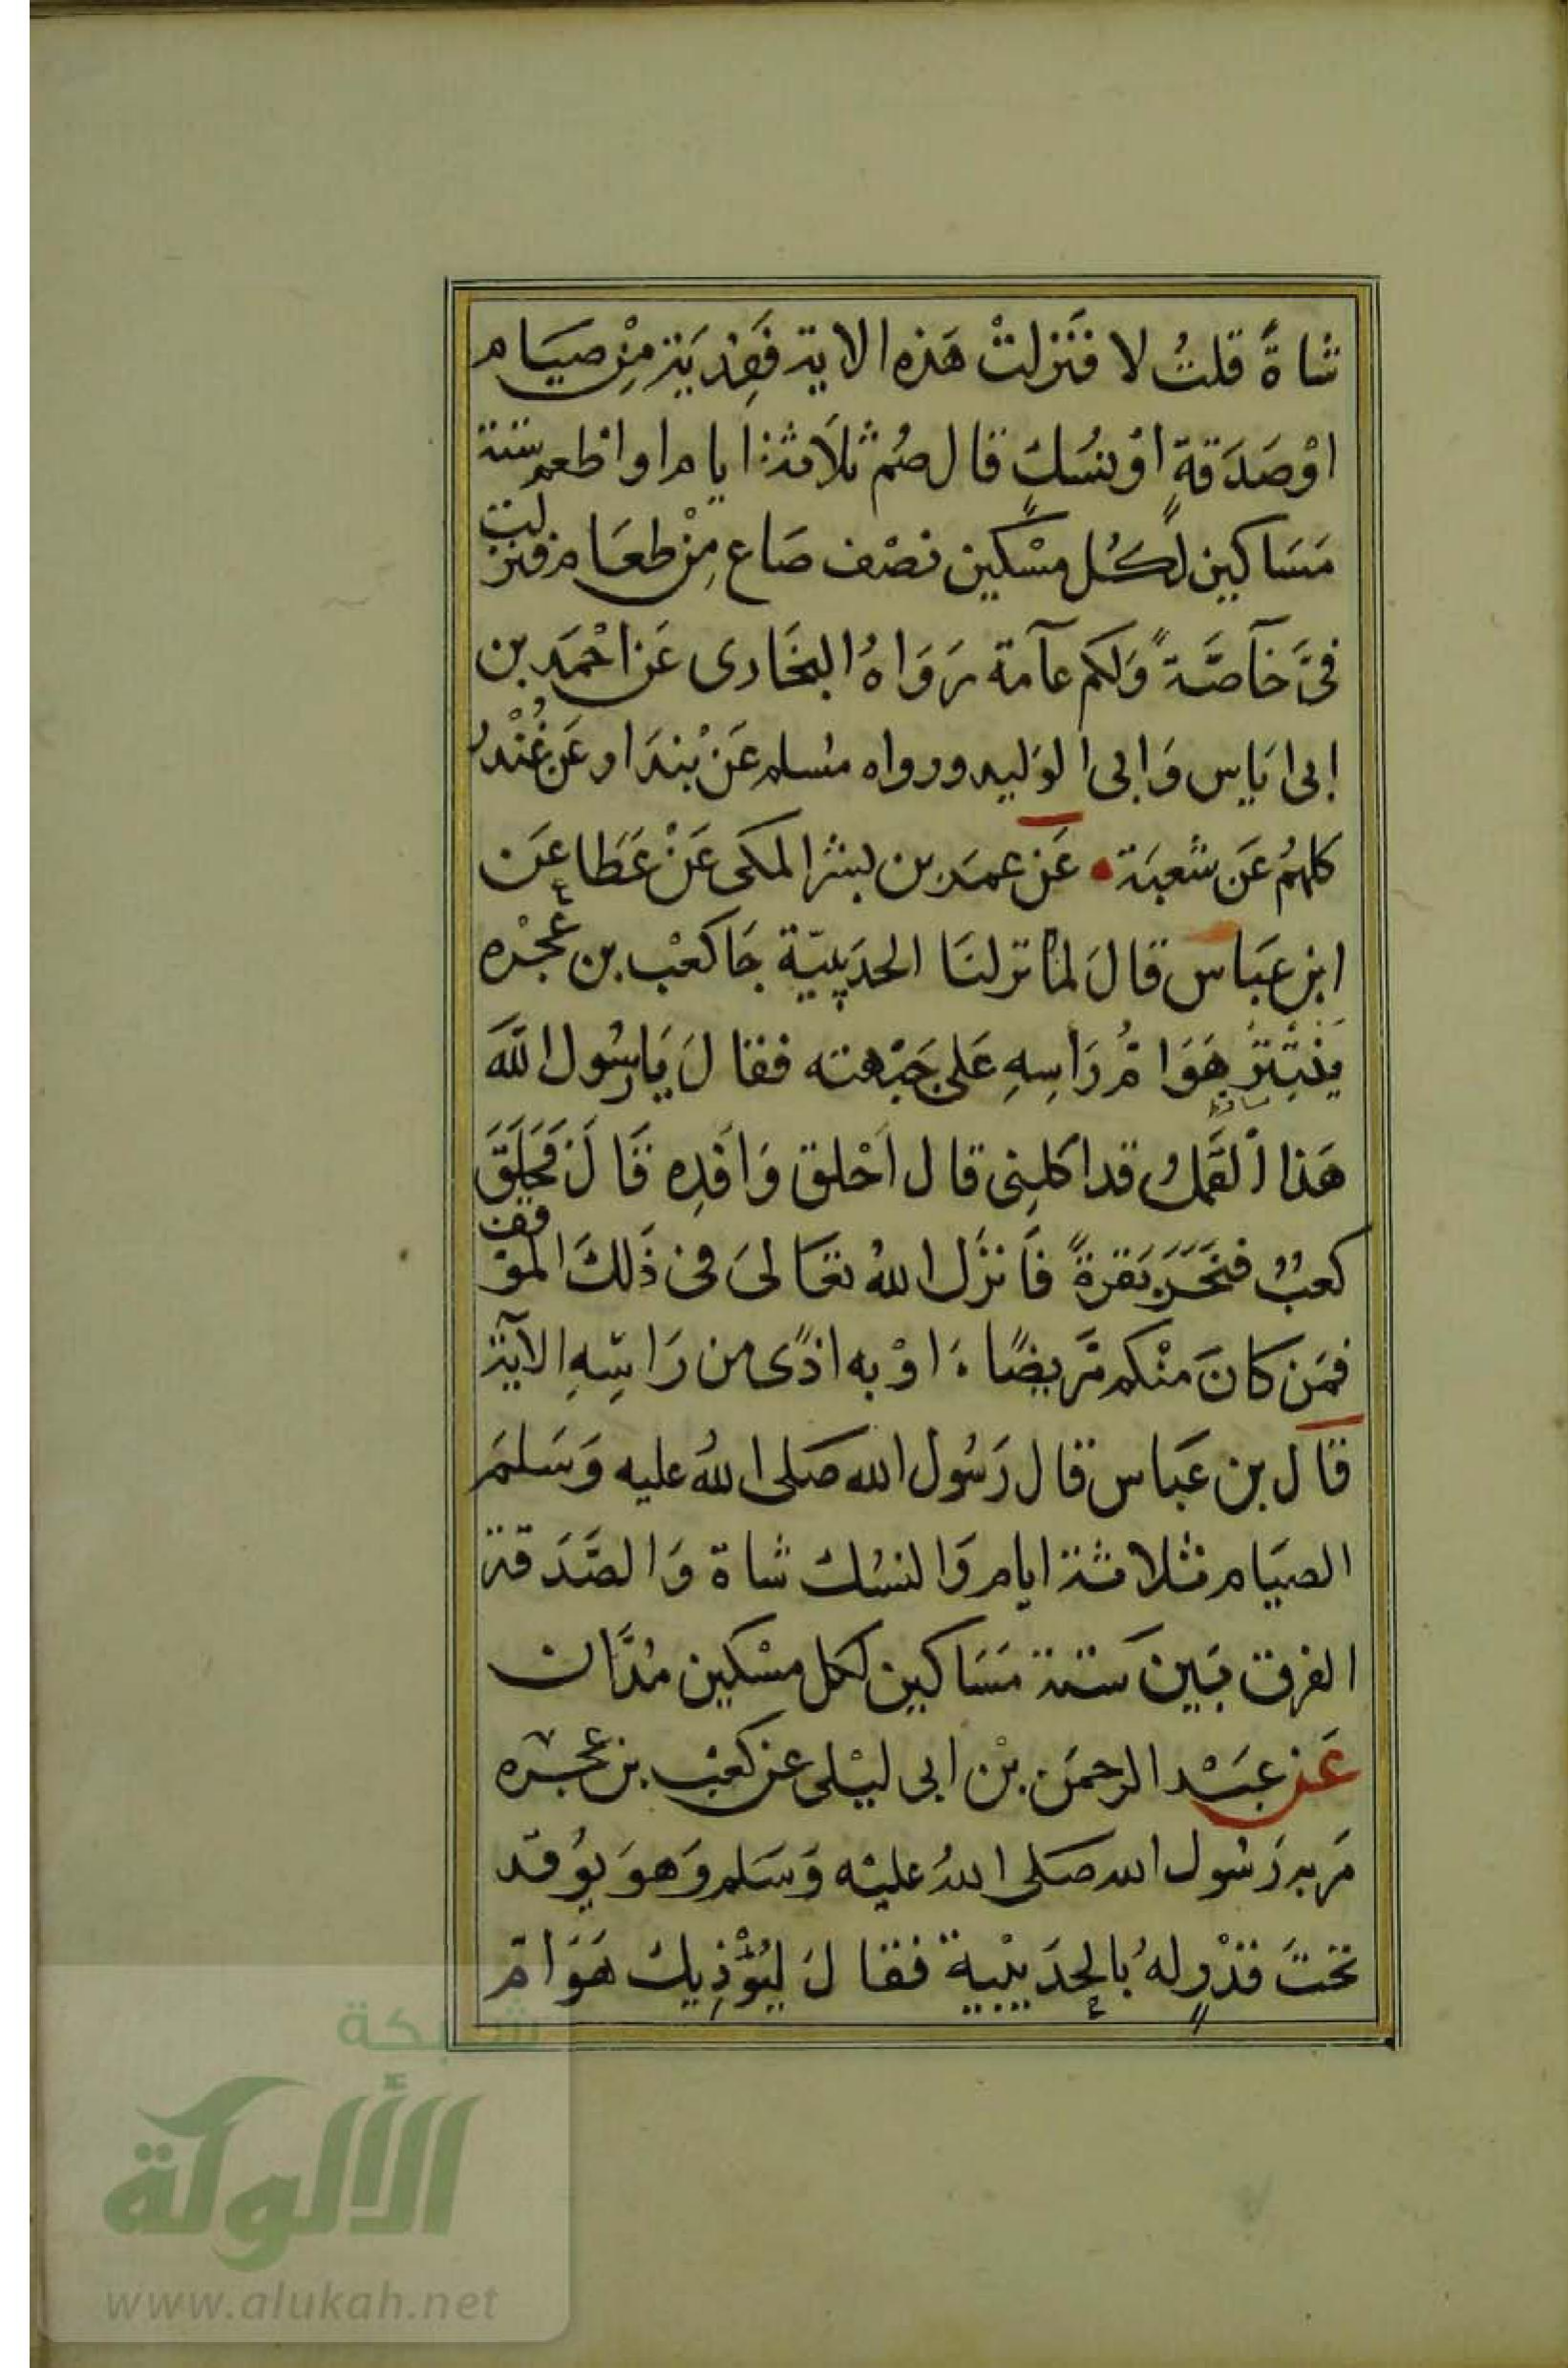 شاةً قلتُ لا فنزلتْ هَذه الاية فَفِديَة مِنْ صيَام
اوْصَدَقةٍ اوْ نسُكٍ قال صُم ثلاَثة ايام او اطعم ستة
مَسَاكين لكُل مسْكين نصْف صَاع مِنْ طعَام فنزلت
فىَّ خآصَّةً وَلكم عآمة رَوَاهُ البخَارى عَن احْمَد بن
ابى ايَاس وَابى الوَليد ورواه مسُلم عَنْ بُندَار عَن غُنْدر
كلهُم عَن شعبَة • عَن عمَر بن بشر المكى عَنْ عَطا عَن
ابن عبَاس قالَ لما نزلنَا الحدَيبيّة جَا كعْب بن عُجْره
ينْتثِر هَوَامُّ رَاسِهِ عَلى جَبْهته فقالَ يَا رسُول اللهَ
هَذا القَملُ قد اكلنِى قال اَحْلق وَافدِه قَالَ فحَلَقَ
كعبٌ فنحَرَ بَقرةً فَانزَل اللهُ تعَالىَ فى ذَلكَ الموقف
فمَن كانَ منْكم مَّريضًا اوْ به اذًى من رَاسِهِ الآية
قالَ بن عَباس قال رَسُول الله صَلى اللهُ عليه وَسَلمَ
الصيَام ثلاثة ايام وَالنسُك شاة وَالصَّدَقة
الفرق بَين ستة مَسَاكين لكل مسْكين مُدَّان
عَن عبَد الرحمَن بْن ابى ليْلى عن كعْب بن عجره
مَر به رَسُول الله صَلى اللهُ عليْه وَسَلم وَهوَ يوُقد
تحْتَ قدْرٍ لهُ بالحِدَيْبية فقالَ ليُؤْذِيك هَوَامّ
شبكة
الألوكة
www.alukah.net